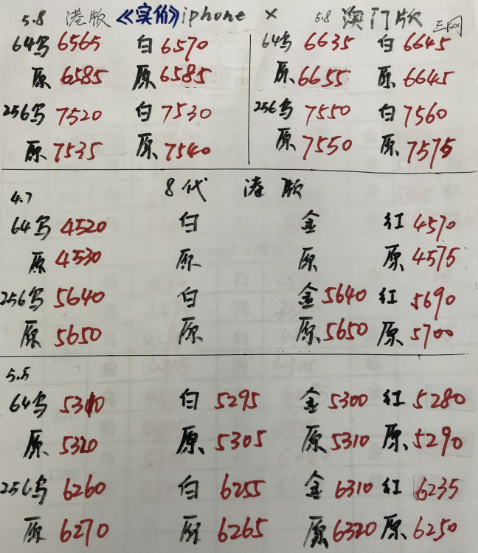 5.8 港版 《实价》 iphone × 5.8 澳门版 三网
64乌 6565 白 6570 64乌 6635 白 6645
原 6585 原 6585 原 6655 原 6645
256乌 7520 白 7530 256乌 7550 白 7560
原 7535 原 7540 原 7550 原 7575
4.7 8代 港版
64乌 4520 白 金 红 4570
原 4530 原 原 原 4575
256乌 5640 白 金 5640 红 5690
原 5650 原 原 5650 原 5700
5.5
64乌 5310 白 5295 金 5300 红 5280
原 5320 原 5305 原 5310 原 5290
256乌 6260 白 6255 金 6310 红 6235
原 6270 原 6265 原 6320 原 6250